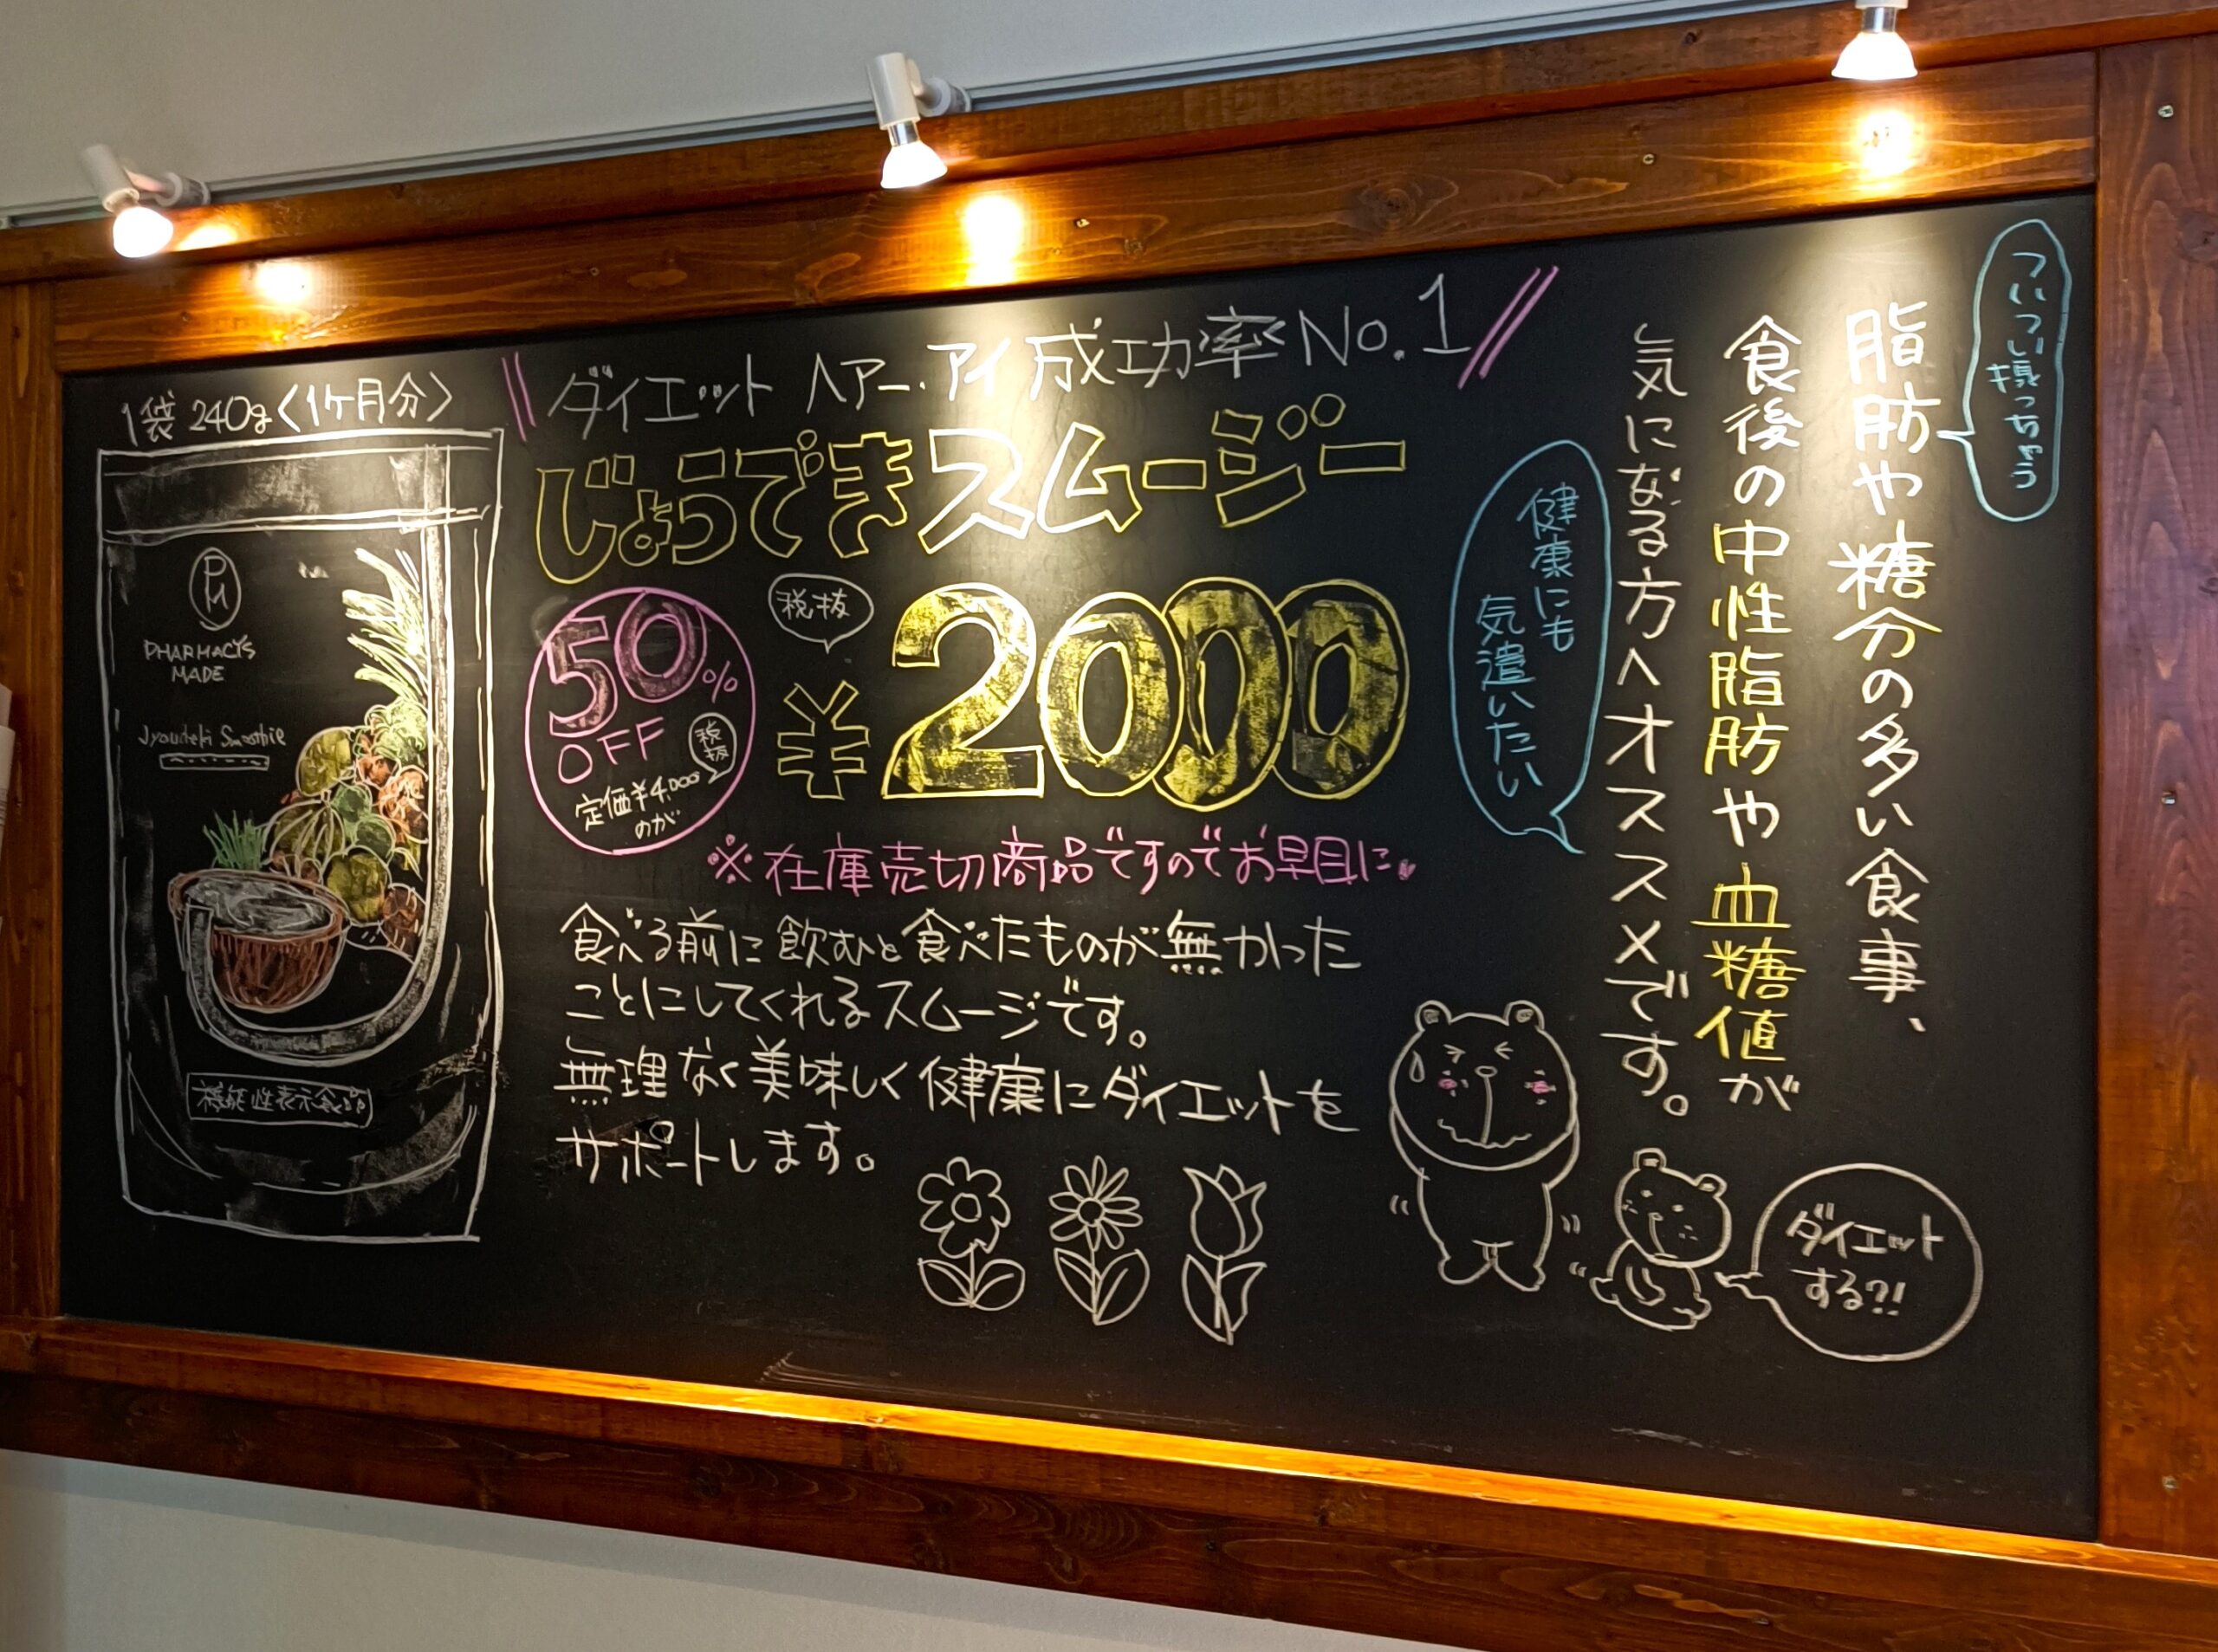 1袋 240g〈1ヶ月分〉
PM
PHARMACY'S
MADE
Jyoudeki Smoothie
機能性表示食品
ダイエット ヘアー・アイ 成功率No.1
じょうできスムージー
50%
OFF
税抜
定価¥4,000
のが
税抜
¥2000
※在庫売切商品ですのでお早目に。
食べる前に飲むと食べたものが無かった
ことにしてくれるスムージーです。
無理なく美味しく健康にダイエットを
サポートします。
ついつい摂っちゃう
脂肪や糖分の多い食事、
食後の中性脂肪や血糖値が
気になる方へオススメです。
健康にも
気遣いたい
ダイエット
する?!